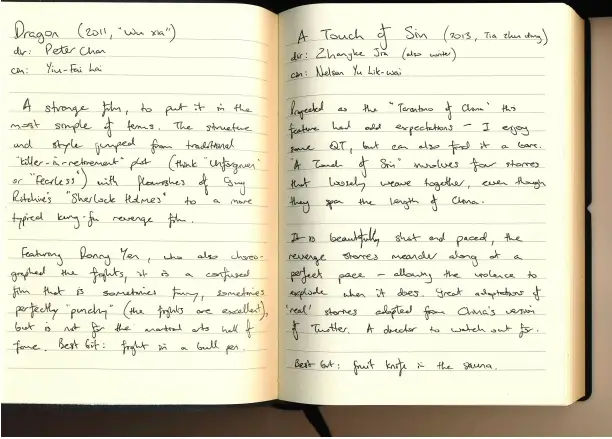 Dragon (2011, "Wu Xia")
dir: Peter Chan
cin: Yiu-Fai Lai
A strange film, to put it in the
most simple of terms. The structure
and style jumped from traditional
"killer-in-retirement" plot (think "Unforgiven"
or "Fearless") with flourishes of Guy
Ritchie's "Sherlock Holmes" to a more
typical kung-fu revenge film.
Featuring Donny Yen, who also choreo-
graphed the fights, it is a confused
film that is sometimes funny, sometimes
perfectly punchy (the fights are excellent),
but is not for the martial arts hall of
fame. Best bit: fight in a bull pen.
A Touch of Sin (2013, Tia zhu ding)
dir: Zhangke Jia (also writer)
cin: Nelson Yu Lik-wai
as the "Tarantino of China" this
feature had odd expectations - I enjoy
some QT, but can also find it a bore.
"A Touch of Sin" involves four stories
that loosely weave together, even though
they span the length of China.
It is beautifully shot and paced, the
revenge stories meander along at a
perfect pace - allowing the violence to
explode when it does. Great adaptations of
'real' stories adapted from China's version
of Twitter. A director to watch out for.
Best bit: fruit knife in the sauna.